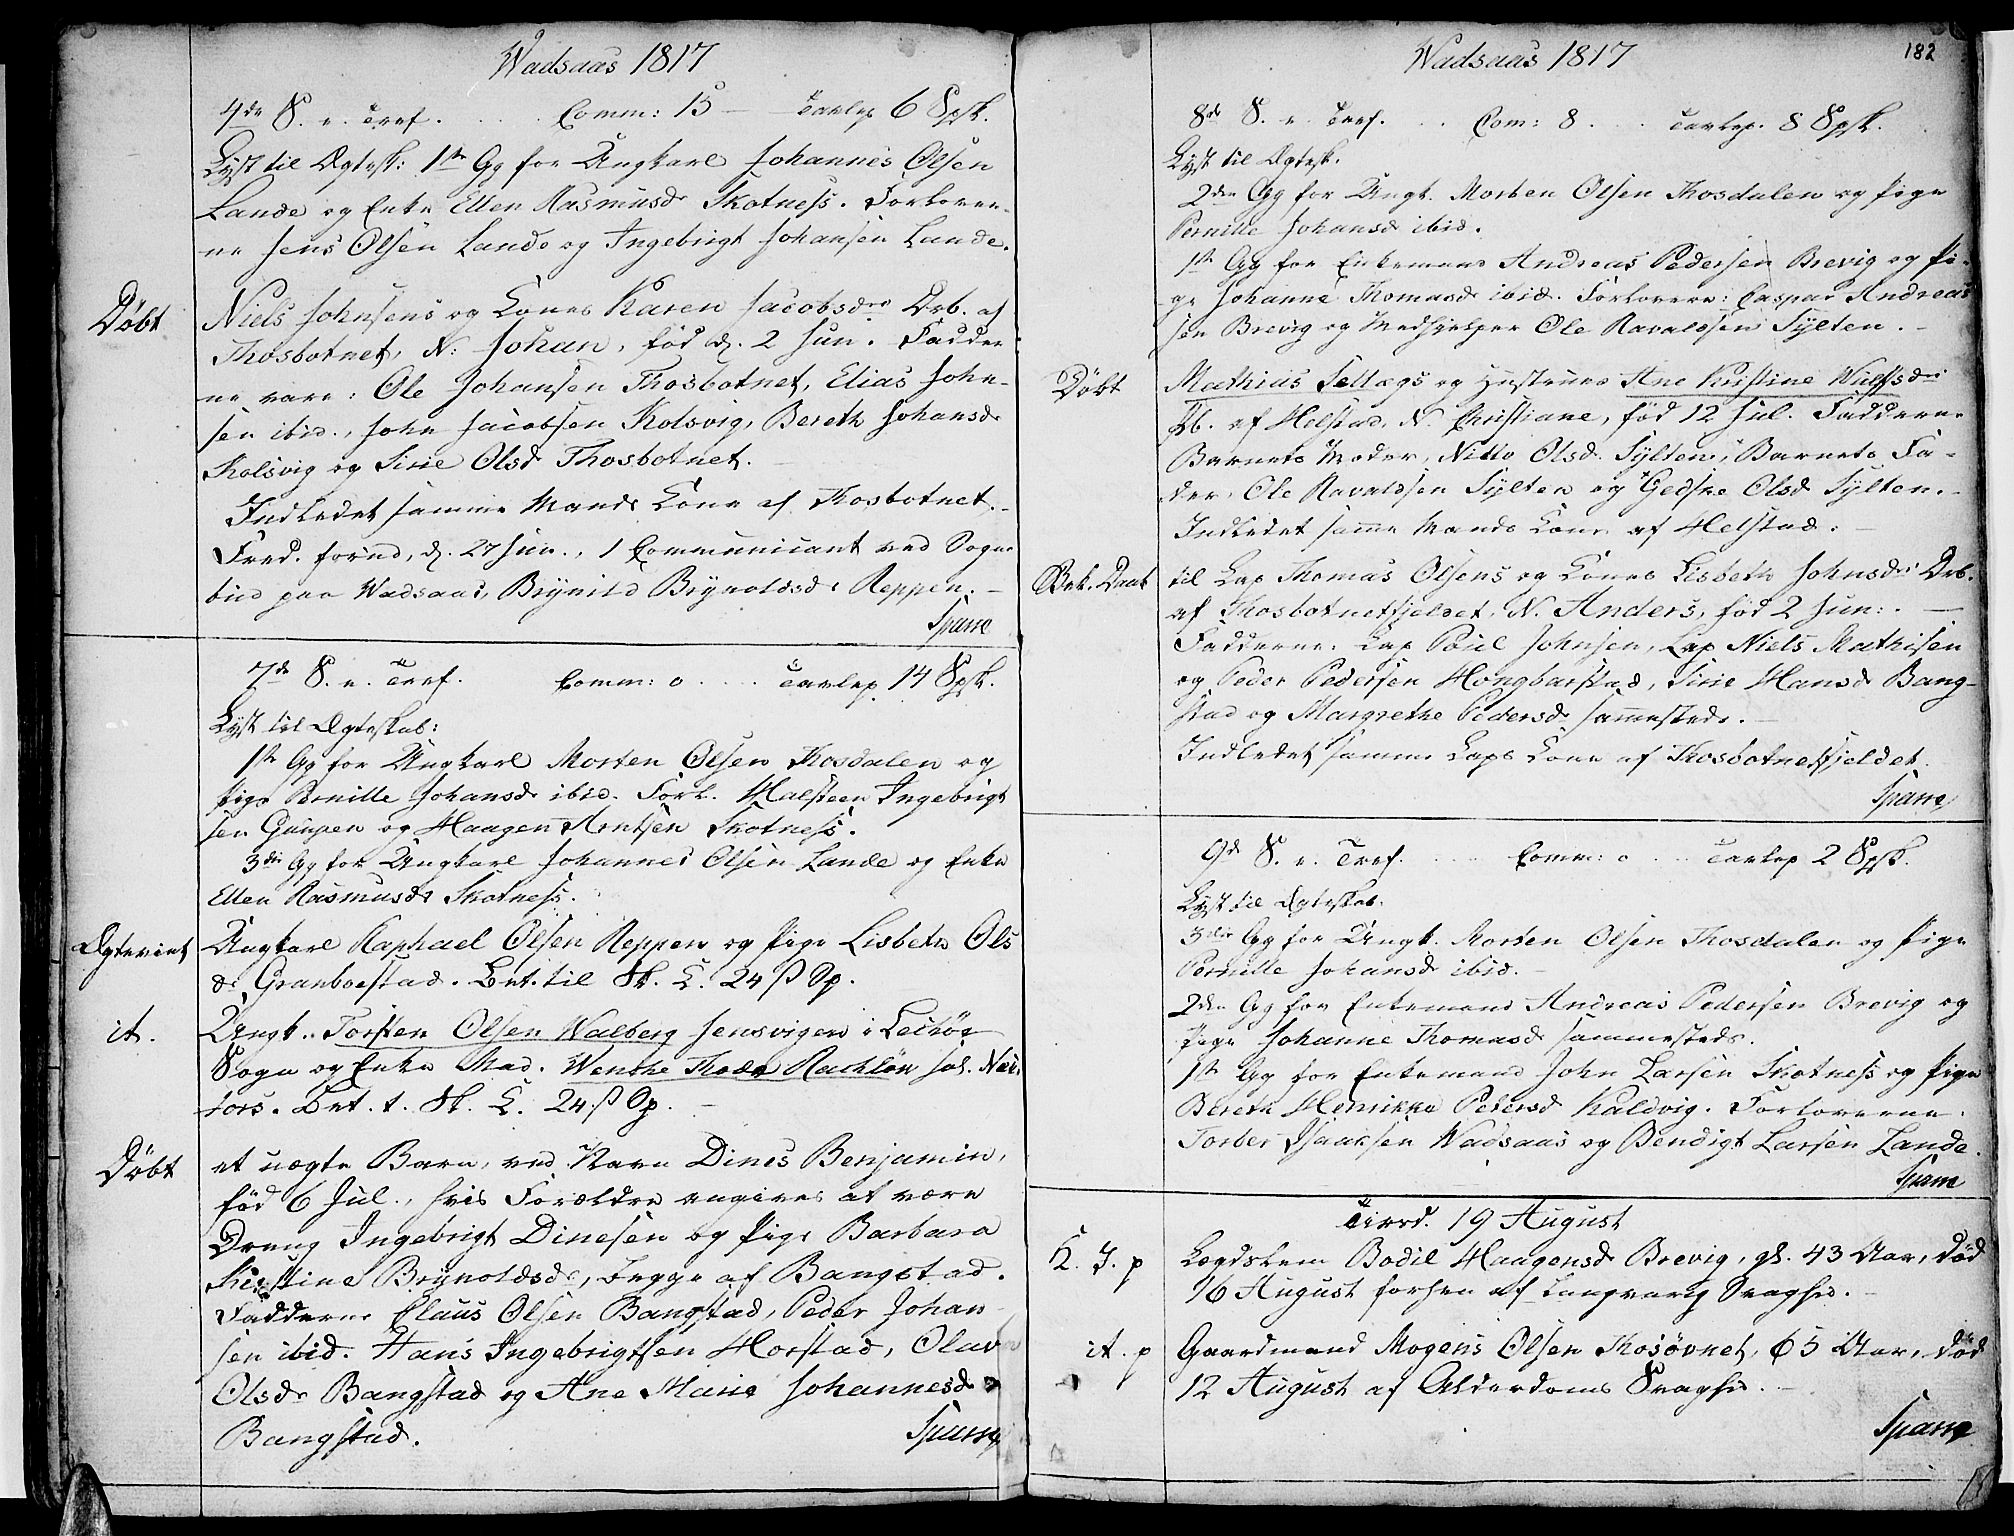 Wadsaas 1817
4de S. e. Tref. . . . Comm: 15 — Tavlep 6 Spsk.
Lyst til Ægtesk: 1ste Gg for Ungkarl Johannes Olsen
Lande og Enke Ellen Rasmusdr Skotness. Forlover-
ne Jens Olsen Lande og Ingebrigt Johansen Lande.
Døbt
Niels Johnsens og Kones Karen Jacobsdrs Drb. af
Thosbotnet, N: Johan, fød d. 2 Jun. Fadder
ne vare: Ole Johansen Thosbotnet, Elias John-
sen ibid., John Jacobsen Kolsvig, Bereth Johansdr
Kolsvig og Sirie Olsd Thosbotnet.
Indledet samme Mands Kone af Thosbotnet.
Fred. forud, d. 27 Jun., 1 Communicant ved Sogne
bud paa Wadsaas, Brynild Brynoldsdr Reppen.
Sparre
7de S. e. Tref. Comm: 0 . . . Tavlep 14 Spsk.
Lyst til Ægteskab:
1ste Gg for Ungkarl Morten Olsen Thosdalen og
Pige Pernille Johansdr ibid. Forl. Halsteen Ingebrigt
sen Gaupen og Haagen Arntsen Skotness.
3die Gg for Ungkarl Johannes Olsen Lande og Enke
Ellen Rasmusdr Skotness.
Ægteviet
Ungkarl Raphael Olsen Reppen og Pige Lisbeth Ols
dr Granboestad. Bet. til Sk. C. 24 ß Sp.
it.
Ungk. Torsten Olsen Walberg Jensvigen i Leckøe
Sogn og Enke Mad. Wenche Thode Rachløw sal.
Bet. t. Sk. C. 24 ß Sp.
Døbt
et uægte Barn, ved Navn Dines Benjamin,
fød 6 Jul., hvis Forældre angives at være
Dreng Ingebrigt Dinesen og Pige Barbara
Kirstine Brynoldsdr, begge af Bangstad.
Fadderne Claus Olsen Bangstad, Peder Johan
sen ibid. Hans Ingebrigtsen Horstad, Olava
Olsdr Bangstad og Ane Marie Johannesdr
Bangstad.
Sparre
Wadsaas 1817
182
8de S. e. Tref. . . Com: 8 . . . Tavlep. 8 Spsk.
Lyst til Ægtesk.
2den Gg for Ungk. Morten Olsen Thosdalen og Pige
Pernille Johansd ibid.
1ste Gg for Enkemand Andreas Pedersen Brevig og Pi-
ge Johanne Thomasd ibid. Forlovere: Caspar Andreas
sen Brevig og Medhjelper Ole Ravaldsen Sylten.
Døbt
Mathias Sellægs og Hustrues Ane Kristine Wulfsdrs
Pb. af Helstad, N. Christiane, fød 12 Jul. Fadderne
Barnets Moder, Nille Olsd. Sylten, Barnets Fa-
der, Ole Ravaldsen Sylten og Gedske Olsd Sylten.
Indledet samme Mands Kone af Helstad.
Bek. Daab
til Lap Thomas Olsens og Kones Lisbeth Johnsdrs Drb.
af Thosbotnetfieldet, N. Anders, fød 2 Jun: .
Fadderne: Lap Poul Johnsen, Lap Niels Mathisen
og Peder Pedersen Hongbarstad, Sirie Hansd Bang-
stad og Margrethe Pedersd sammesteds.
Indledet samme Laps Kone af Thosbotnetfieldet.
Sparre
9de S. e. Tref. . . . Comm: 0 . . . Tavlep 2 Spsk.
Lyst til Ægteskab.
3die Gg for Ungk. Morten Olsen Thosdalen og Pige
Pernille Johansd ibid.
2den Gg for Enkemand Andreas Pedersen Brevig og
Pige Johanne Thomasd sammesteds.
1ste Gg for Enkemand John Larsen Skotness og Pige
Bereth Henrikka Pedersd Kaldvig. Forloverne.
Torber Isaacsen Wadsaas og Bendigt Larsen Lande.
Sparre
Tirsd. 19 August
K. J. p
Lægdslem Bodil Haagensd Brevig, gl. 43 Aar, død
16 August forhen af langvarig Svaghed.
it. p
Gaardmand Mogens Olsen Thosøvnet, 65 Aar, død
12 August af Alderdoms Svaghed.
Sparre